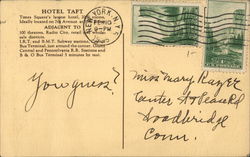 HOTEL TAFT
Times Square's largest hotel, 2000
Ideally located on 7th Avenue at
ADJACENT TO
100 theatres, Radio City, retail
sale districts.
I.R.T. and B.M.T. Subway stations,
Bus Terminal, just around the corner. Grand
Central and Pennsylvania R.R. Stations and
B. & O Bus Terminal 5 minutes by taxi.
NEW YORK, N.Y.
Youguess?
Miss Mary
Center
Woodbridge
Conn.